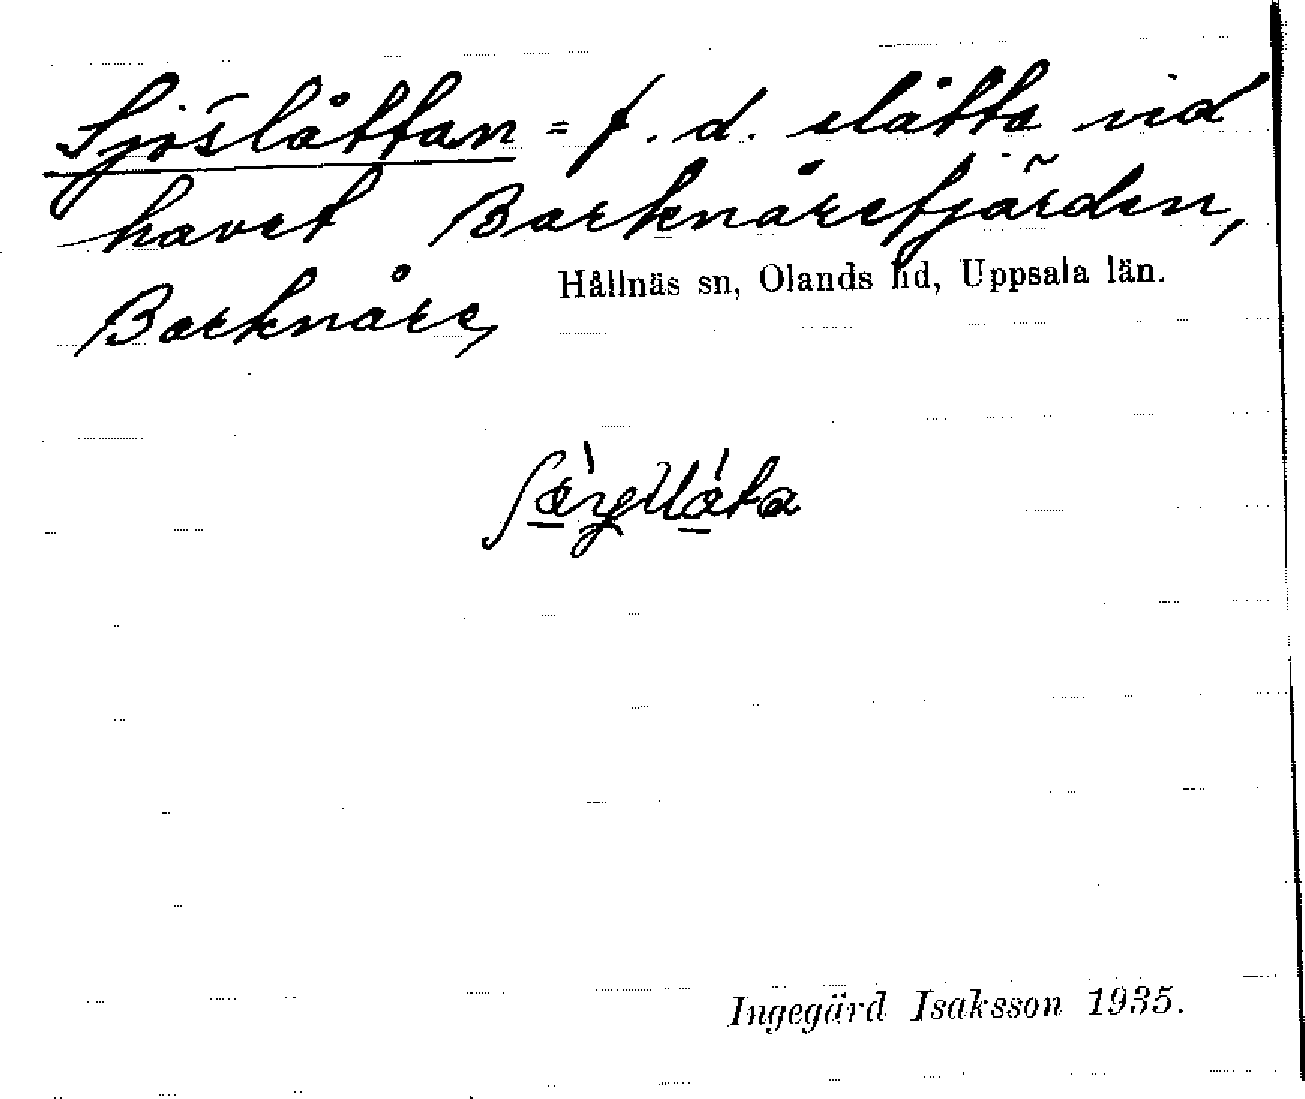 Sjöslåttan = f. d. slåtta vid
havet Barknårefjärden,
Hållnäs sn, Olands hd, Uppsala län.
Barknåre,
Ingegärd Isaksson 1935.